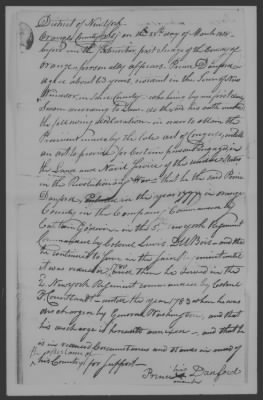 District of New York
Orange County SS. on the 28th day of March 1818
before me the Subscriber first Judge of the County of
Orange personally appears Prince Danford
aged about 63 years resident in the Town of New
Windsor in Said County who being by me first duly
Sworn according to Law doth on his oath make
the following declaration in order to obtain the
Provision made by the late act of Congress, entitled
an act to provide for Certain persons Engaged in
the Land and Naval Service of the United States
in the Revolutionary War that he the said Prince
Danford in the year 1777 in orange
County in the Company Commanded by
Captain in the 5 New york Regiment
Commanded by Colonel Lewis DuBois and that
he continued to Serve in the Said until
it was 1780 he Served in the
2 New york Regiment commanded by Colonel
P. Cortlandt untill the year 1783 when he was
discharged by General Washington, and that
his discharge is hereunto annexed and that he
is in reduced Circumstances and stands in need of
the assistance of
his Country for Support
Prince his Danford
mark